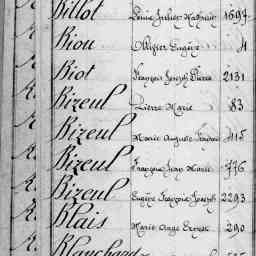 Billot Julien Mathurin 1697
Biou Ollivier Eugène 4
Biot François Joseph Pierre 2131
Bizeul Pierre Marie 83
Bizeul Marie Auguste 415
Bizeul François Jean Marie 776
Bizeul Eugène François Joseph 2293
Blais Marie Ange Ernest 290
Blanchard